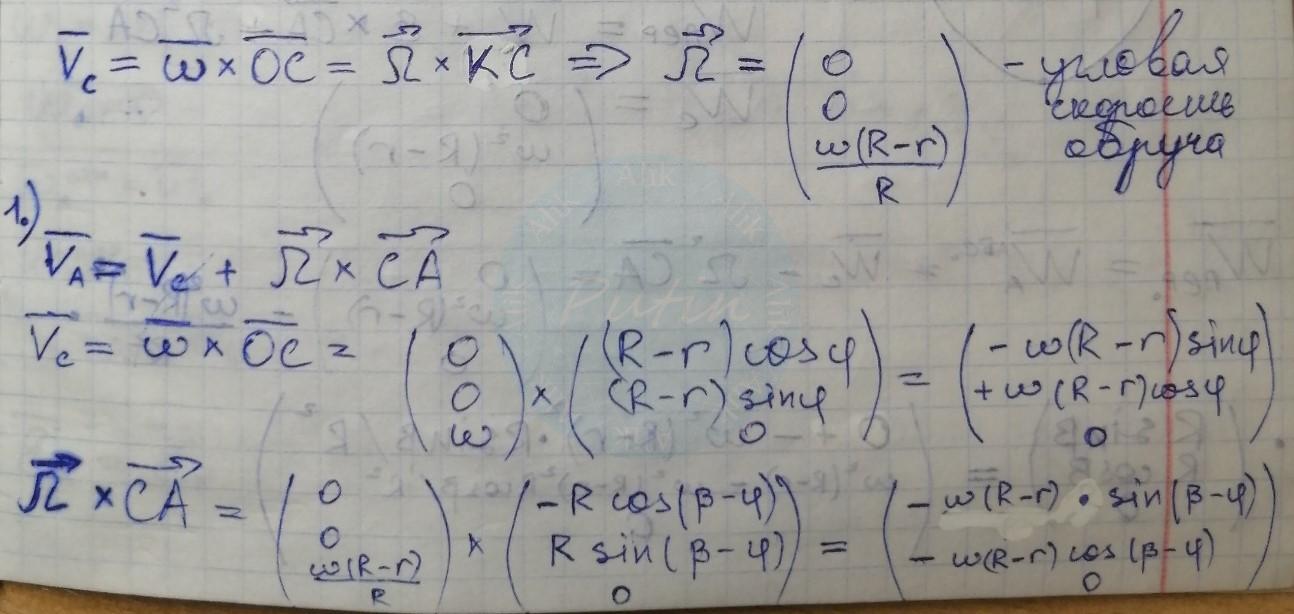 V̅c = ω̅ × O̅C̅ = Ω⃗ × KC⃗ => Ω⃗ = ( 0 ; 0 ; ω(R-r)/R ) - угловая
скорость
обруча
1.)
V̅A = V̅c + Ω⃗ × CA⃗
V̅c = ω̅ × O̅C̅ = ( 0 ; 0 ; ω ) × ( (R-r)cosφ ; (R-r)sinφ ; 0 ) = ( -ω(R-r)sinφ ; +ω(R-r)cosφ ; 0 )
Ω⃗ × CA⃗ = ( 0 ; 0 ; ω(R-r)/R ) × ( -R cos(β-φ) ; R sin(β-φ) ; 0 ) = ( -ω(R-r)·sin(β-φ) ; -ω(R-r)cos(β-φ) ; 0 )
Alik
Alik
Alik
Putin